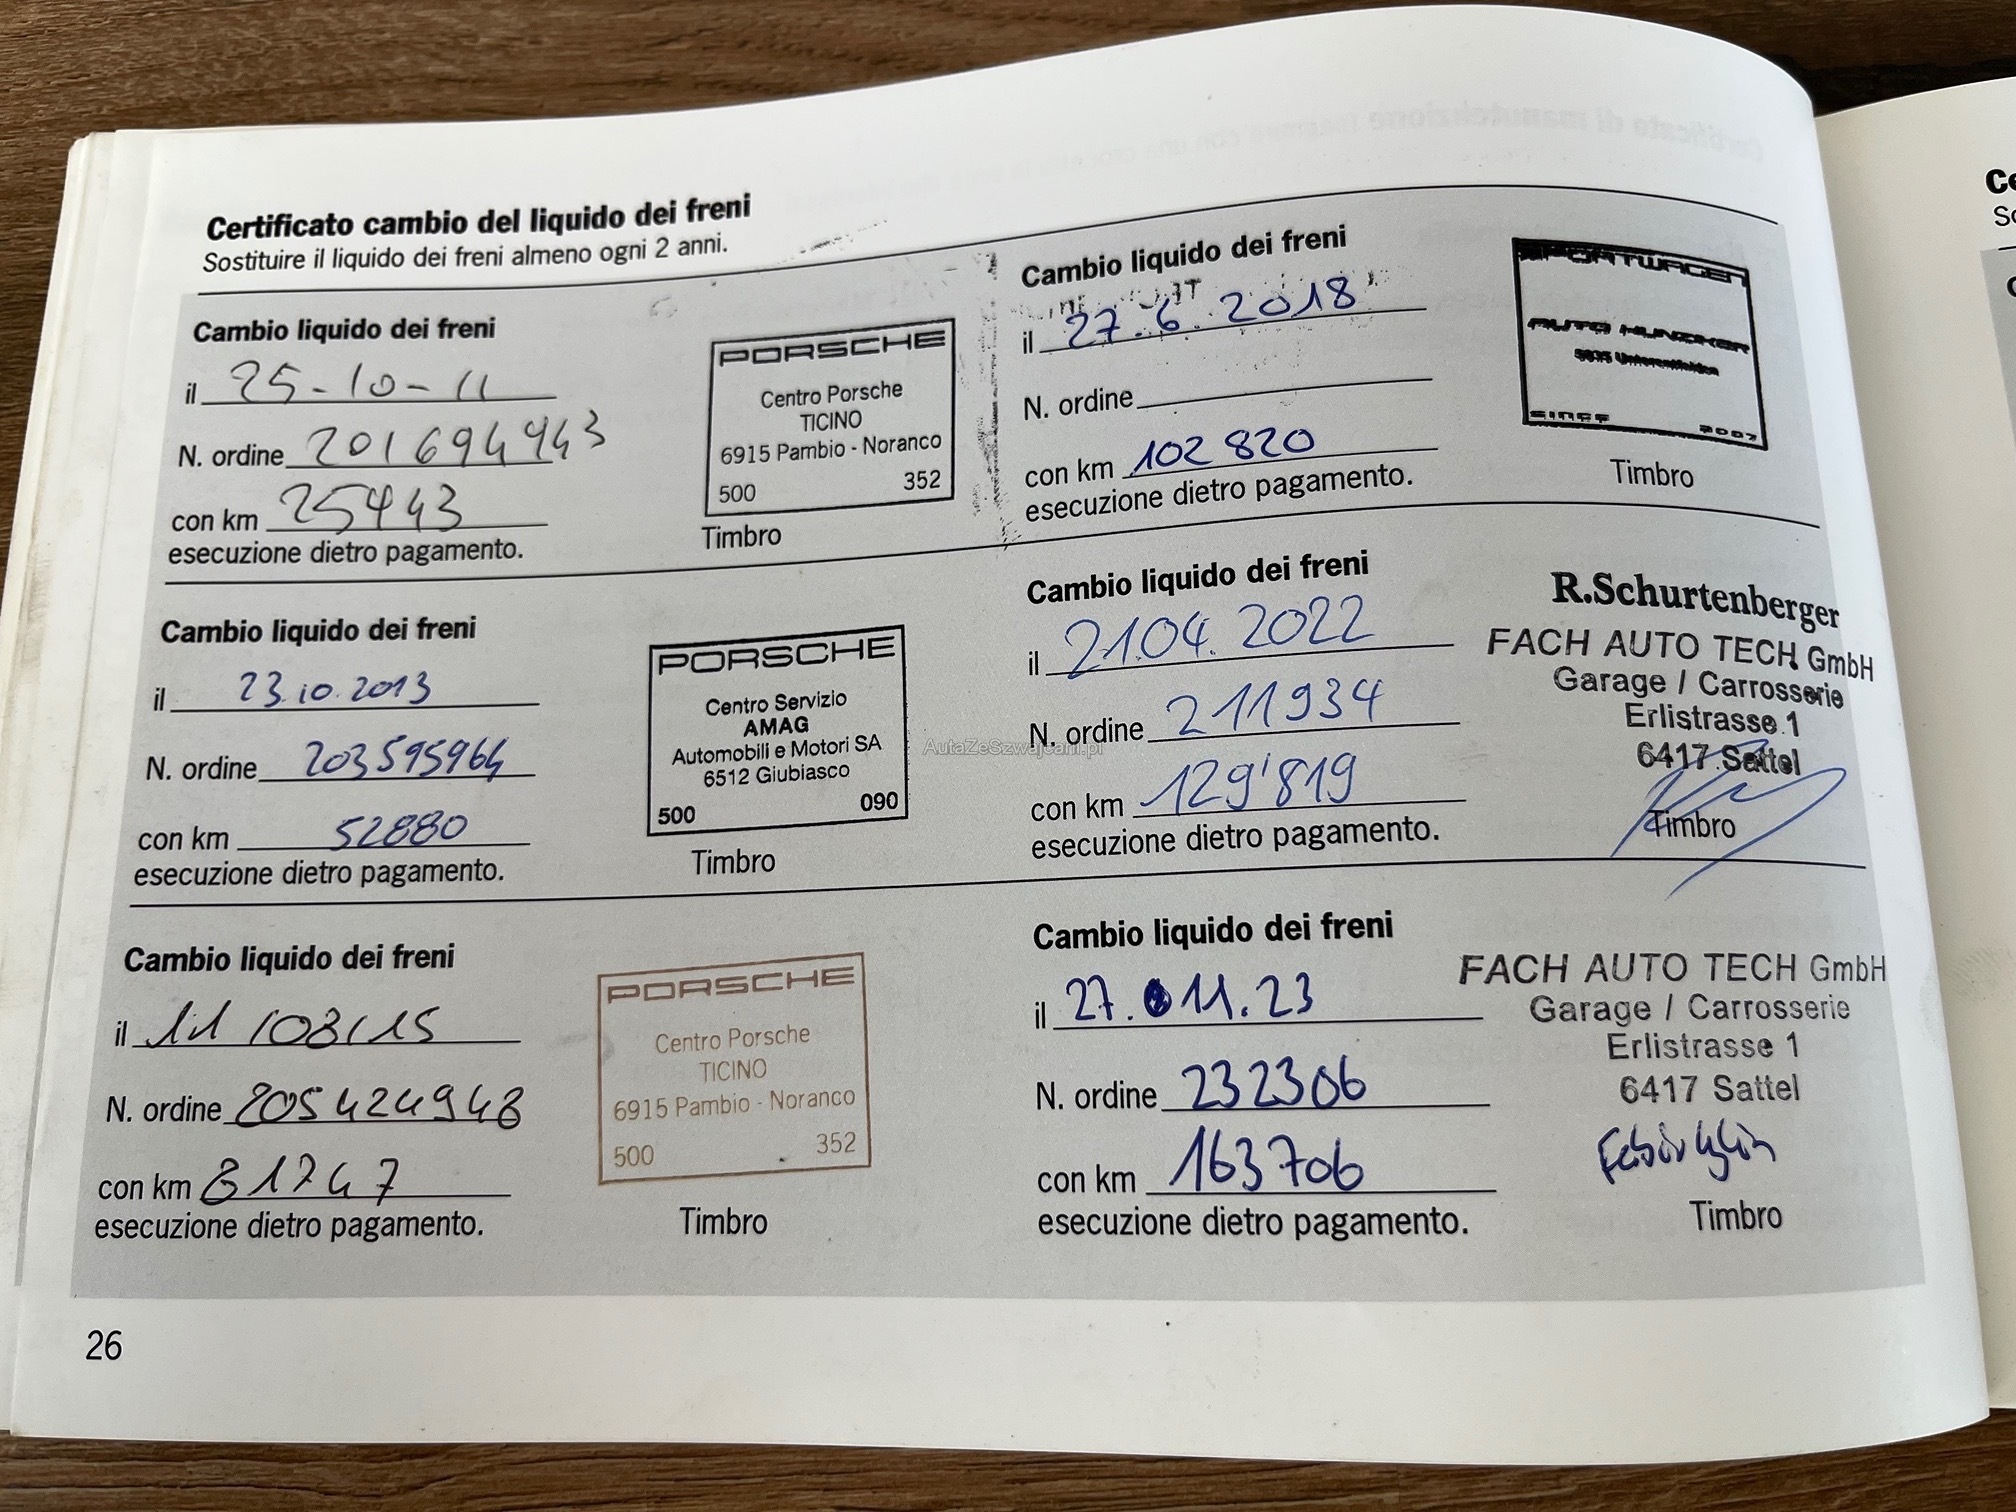 Certificato cambio del liquido dei freni
Sostituire il liquido dei freni almeno ogni 2 anni.
Cambio liquido dei freni
il 25-10-11
N. ordine 201694943
con km 25443
esecuzione dietro pagamento.
PORSCHE
Centro Porsche
TICINO
6915 Pambio - Noranco
500 352
Timbro
Cambio liquido dei freni
il 23.10.2013
N. ordine 203595964
con km 52880
esecuzione dietro pagamento.
PORSCHE
Centro Servizio
AMAG
Automobili e Motori SA
6512 Giubiasco
500 090
Timbro
Cambio liquido dei freni
il 11/08/15
N. ordine 205424948
con km 81747
esecuzione dietro pagamento.
PORSCHE
Centro Porsche
TICINO
6915 Pambio - Noranco
500 352
Timbro
Cambio liquido dei freni
il 27.6.2018
N. ordine
con km 102820
esecuzione dietro pagamento.
SPORTWAGEN
AUTO HUNZIKER
SINCE 2007
Timbro
Cambio liquido dei freni
il 21.04.2022
N. ordine 211934
con km 129'819
esecuzione dietro pagamento.
R.Schurtenberger
FACH AUTO TECH GmbH
Garage / Carrosserie
Erlistrasse 1
6417 Sattel
Timbro
Cambio liquido dei freni
il 27.11.23
N. ordine 232306
con km 163706
esecuzione dietro pagamento.
FACH AUTO TECH GmbH
Garage / Carrosserie
Erlistrasse 1
6417 Sattel
Timbro
26
AutaZeSzwajcarii.pl